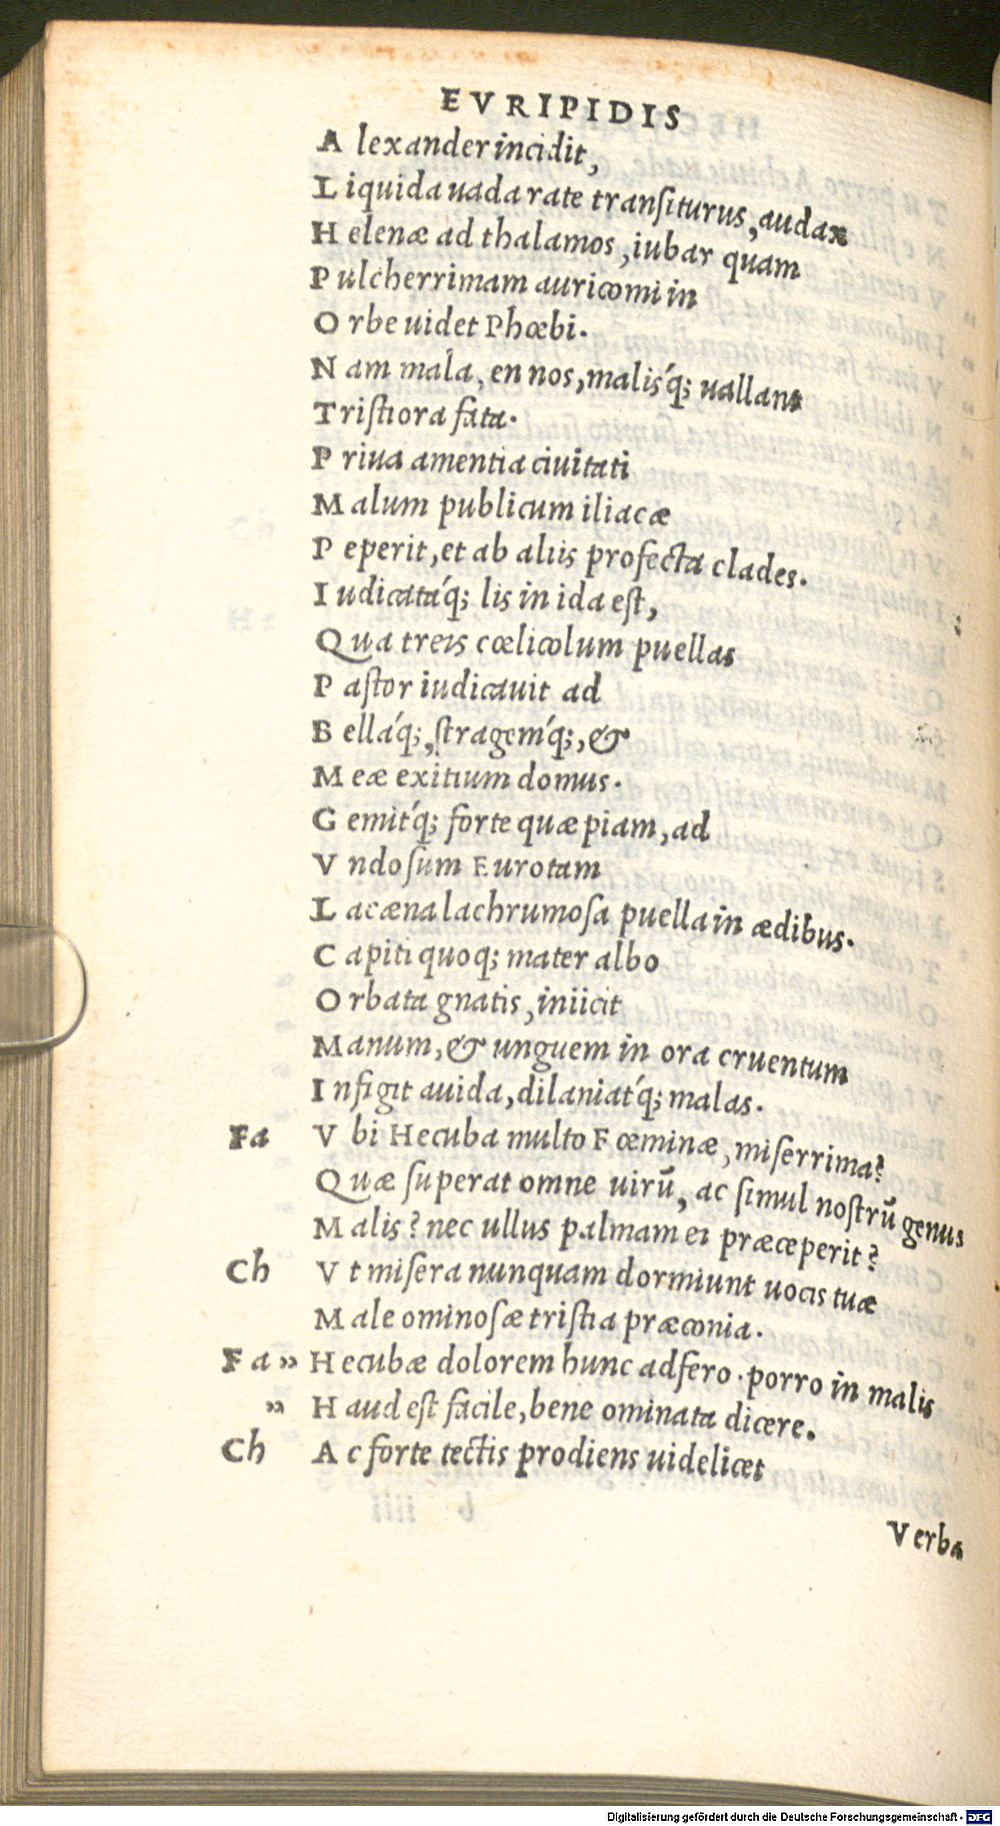 EVRIPIDIS
A lexander incidit,
L iquida uada rate transiturus, audax
H elenæ ad thalamos, iubar quam
P ulcherrimam auricomi in
O rbe uidet Phœbi.
N am mala, en nos, malisq́; uallant
T ristiora fata.
P riua amentia ciuitati
M alum publicum iliacæ
P eperit, et ab aliis profecta clades.
I udicataq́; lis in ida est,
Q ua treis cœlicolum puellas
P astor iudicauit ad
B ellaq́;, stragemq́;, &
M eæ exitium domus.
G emitq́; forte quæpiam, ad
V ndosum Eurotam
L acæna lachrumosa puella in ædibus.
C apiti quoq; mater albo
O rbata gnatis, iniicit
M anum, & unguem in ora cruentum
I nfigit auida, dilaniatq́; malas.
Fa V bi Hecuba multo Fœminæ, miserrima?
Q uæ superat omne uirū, ac simul nostrū genus
M alis? nec ullus palmam ei præceperit?
Ch V t misera nunquam dormiunt uocis tuæ
M ale ominosæ tristia præconia.
Fa » H ecubæ dolorem hunc adfero. porro in malis
» H aud est facile, bene ominata dicere.
Ch A c forte tectis prodiens uidelicet
Verba
Digitalisierung gefördert durch die Deutsche Forschungsgemeinschaft - DFG